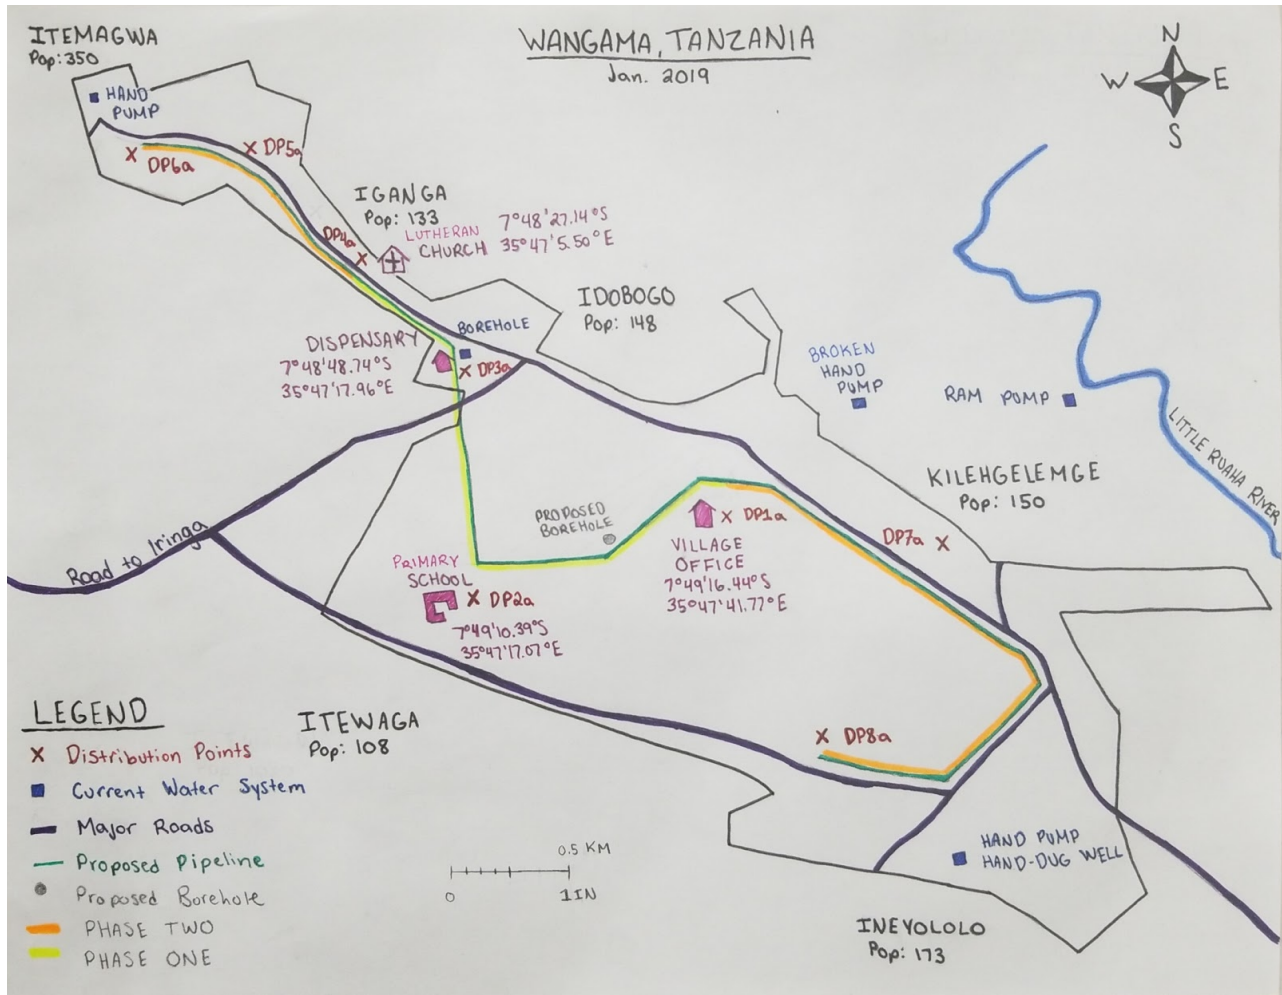 WANGAMA, TANZANIA
Jan. 2019
ITEMAGWA
Pop: 350
HAND
PUMP
N
W
E
S
DP6a
DP5a
IGANGA
Pop: 133
LUTHERAN
CHURCH
7°48'27.14°S
35°47'5.50°E
DP4a
IDOBOGO
Pop: 148
DISPENSARY
7°48'48.74°S
35°47'17.96°E
BOREHOLE
DP3a
BROKEN
HAND
PUMP
RAM PUMP
LITTLE RUAHA RIVER
KILEHGELEMGE
Pop: 150
Road to Iringa
PROPOSED
BOREHOLE
DP1a
VILLAGE
OFFICE
7°49'16.44°S
35°47'41.77°E
DP7a
PRIMARY
SCHOOL
DP2a
7°49'10.39°S
35°47'17.07°E
ITEWAGA
Pop: 108
DP8a
HAND PUMP
HAND-DUG WELL
INEYOLOLO
Pop: 173
LEGEND
X Distribution Points
Current Water System
Major Roads
Proposed Pipeline
Proposed Borehole
PHASE TWO
PHASE ONE
0.5 KM
0
1IN